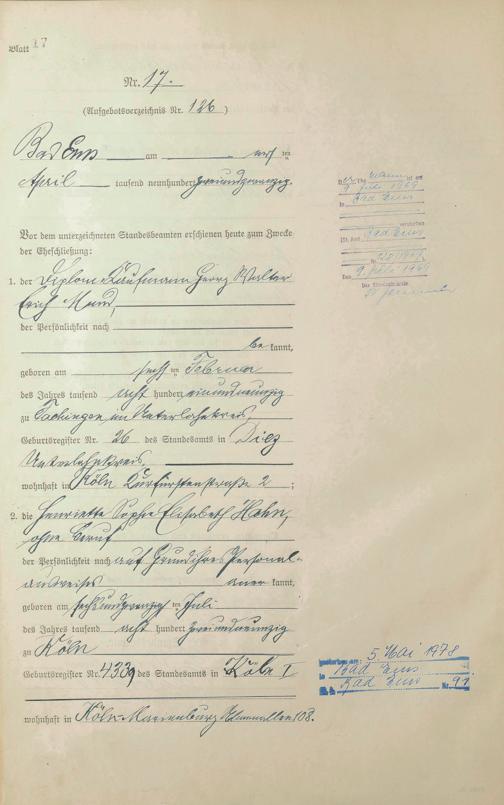 Blatt 17
Nr. 17.
(Aufgebotsverzeichnis Nr. 126)
Bad Ems am ten
April tausend neunhundert zweiundzwanzig.
Vor dem unterzeichneten Standesbeamten erschienen heute zum Zwecke
der Eheschließung:
1. der Diplom Kaufmann Georg Walter
Erich
der Persönlichkeit nach
be kannt,
geboren am sechs ten Februar
des Jahres tausend acht hundert einundneunzig
zu Fachingen im Unterlahnkreis
Geburtsregister Nr. 26 des Standesamts in Diez
Unterlahnkreis,
wohnhaft in Köln Kurfürstenstraße 2;
2. die Henriette Sophie Elisabeth Hahn,
ohne Beruf
der Persönlichkeit nach auf Grund ihres Personal-
ausweises aner kannt,
geboren am sechsundzwanzig ten Juli
des Jahres tausend acht hundert zweiundneunzig
zu Köln
Geburtsregister Nr. 4339 des Standesamts in Köln I
wohnhaft in Köln-Marienburg 108.
9. Juli 1969
in Bad Ems
verstorben
Bad Ems
Nr.
Den 9. Juli 1969
Der Standesbeamte
gestorben am: 5 Mai 1978
in Bad Ems
Bad Ems Nr. 91